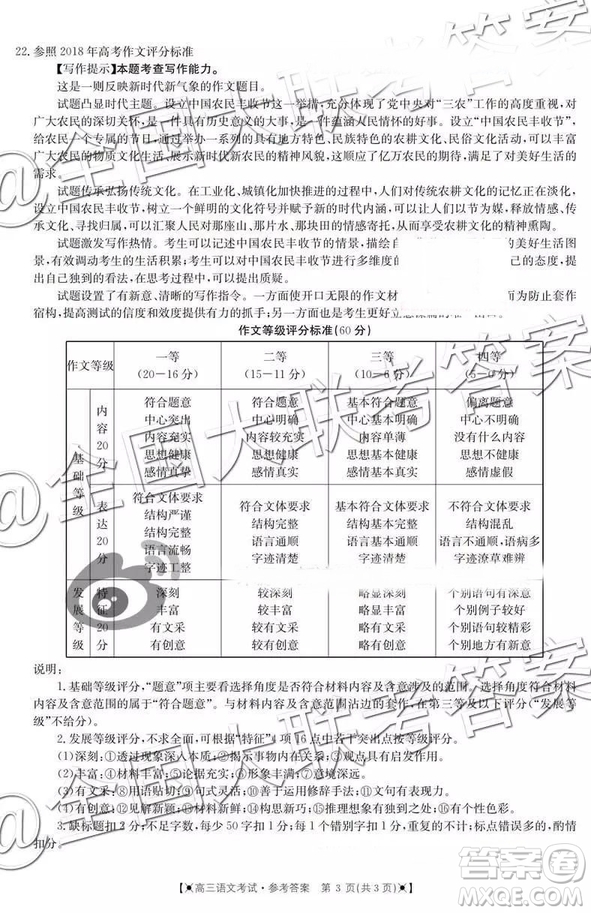 22. 参照 2018 年高考作文评分标准
【写作提示】本题考查写作能力。
这是一则反映新时代新气象的作文题目。
试题凸显时代主题。设立中国农民丰收节这一举措,充分体现了党中央对“三农”工作的高度重视,对
广大农民的深切关怀,是一件具有历史意义的大事,是一件蕴涵人民情怀的好事。设立“中国农民丰收节”,
给农民一个专属的节日,通过举办一系列的具有地方特色、民族特色的农耕文化、民俗文化活动,可以丰富
广大农民的物质文化生活、展示新时代新农民的精神风貌,满足了亿万农民的期待,满足了对美好生活的
需求。
试题传承弘扬传统文化。在工业化、城镇化加快推进的过程中,人们对传统农耕文化的记忆正在淡化,
设立中国农民丰收节,树立一个鲜明的文化符号并赋予新的时代内涵,可以让人们以节为媒,释放情感、传
承文化、寻找归属,可以汇聚人民对那座山、那片水、那块田的情感寄托,从而享受农耕文化的精神熏陶。
试题激发写作热情。考生可以记述中国农民丰收节的情景,描绘自 的美好生活图
景,有效调动考生的情感体验和生活积累;考生可以对中国农民丰收节 己的态度,
提出自己独到的看法,在思考过程中,可以提出质疑。
试题设置了新意、清晰的写作指令。一方面使开口无限的作文材 方面成为防止套作
的措施,提高测试的信度和效度提供有力的抓手;另一方面有
作文等级评分标准(60 分)
作文等级 一等 (20—16 分) 二等 (15—11 分) 三等 (10—6 分) 四等 (5—0 分)
基础等级
内容 20 分
符合题意 符合题意 基本符合题意 偏离题意
中心突出 中心明确 中心基本明确 中心不明确
内容充实 内容较充实 内容单薄 没有什么内容
思想健康 思想健康 思想基本健康 思想不健康
感情真挚 感情真实 感情基本真实 感情虚假
表达 20 分
符合文体要求 符合文体要求 基本符合文体要求 不符合文体要求
结构严谨 结构完整 结构基本完整 结构混乱
语言流畅 语言通顺 语言基本通顺 语言不通顺,语病多
字迹工整 字迹清楚 字迹基本清楚 字迹潦草难辨
发展等级
特征 20 分
深刻 较深刻 略显深刻 个别语句有深意
丰富 较丰富 略显丰富 个别例子较好
有文采 较有文采 略有文采 个别语句较精彩
有创意 较有创意 略有创意 个别地方有个性
说明:
1.基础等级评分,“题意”主要看选择角度是否符合材料内容及含意涉及的范围。凡角度符合材料内容
及含意范围的属于“符合题意”。与材料内容及含意范围沾边的套作,在第三等及以下评分(“发展等
级”不给分)。
2.发展等级评分,不求全面,可根据“特征”4 项 16 点中若干突出点按等级评分。
(1)深刻:①透过现象深入本质②揭示事物内在的因果关系③观点具有启发作用。
(2)丰富:④材料丰富⑤论据充实⑥形象丰满⑦意境深远。
(3)有文采:⑧用词贴切⑨句式灵活⑩善于运用修辞手法⑪文句有表现力。
(4)有创意:⑫见解新颖⑬材料新鲜⑭构思新巧⑮推理想象有独到之处⑯有个性色彩。
3.缺标题扣 2 分;不足字数,每少 50 字扣 1 分;每 1 个错别字扣 1 分,重复不计;标点错误多的,酌情
扣分。
【高三语文考试·参考答案 第 3 页(共 3 页)】
@全国大联考答案
@全国大联考答案
@全国大联考答案
答案圈
MXQE.COM